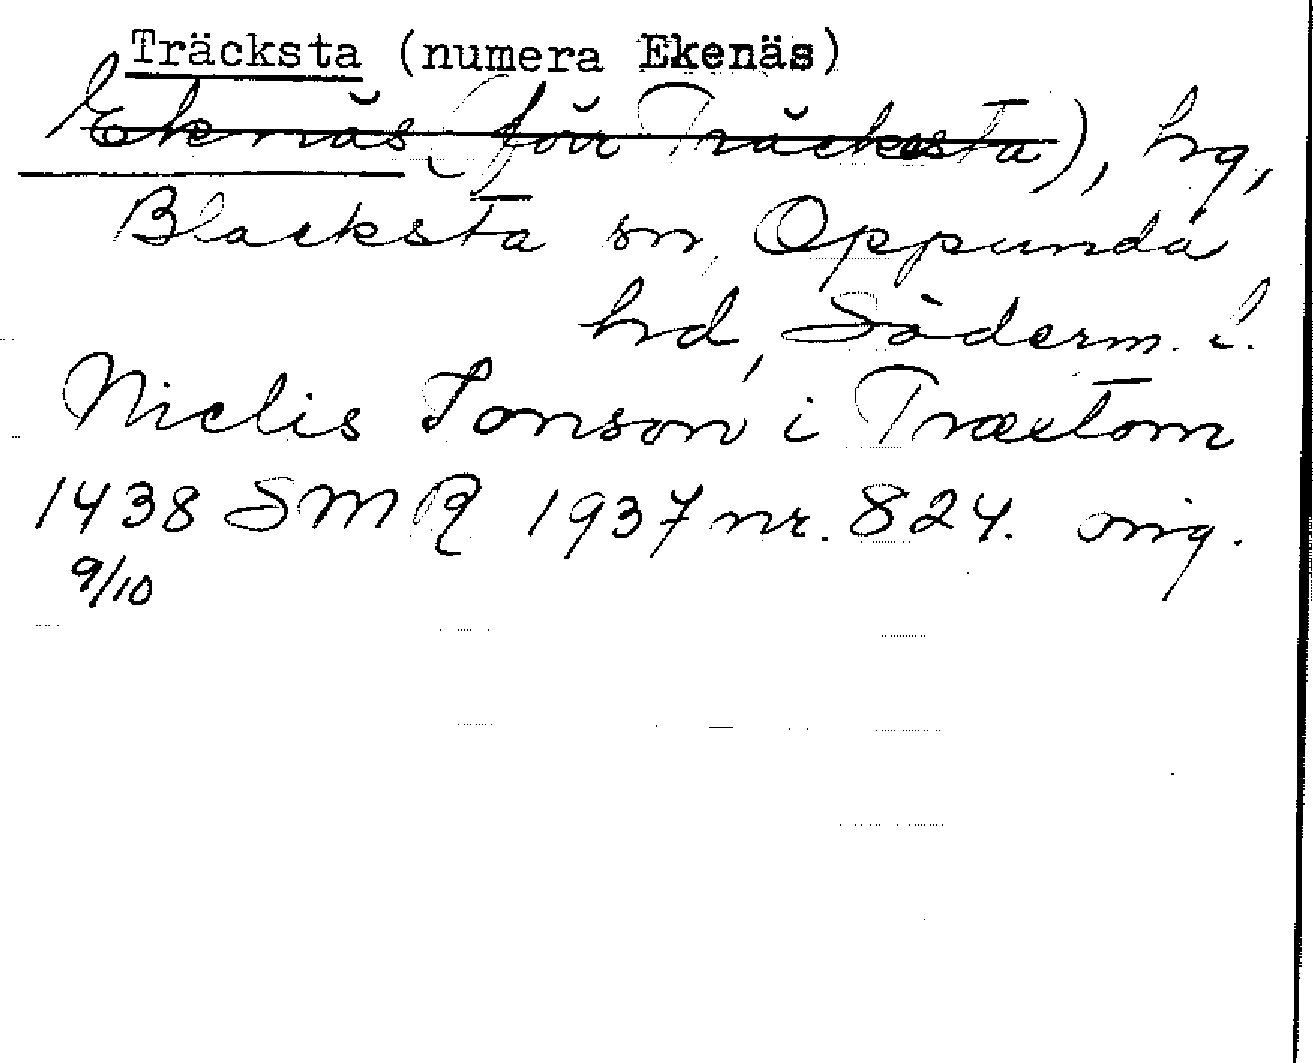 Träcksta (numera Ekenäs)
Ekenäs (förr Träcksta), hg,
Blacksta sn, Oppunda
hd, Söderm. l.
Niclis Tonson i Træctom
1438 SMR 1937 nr. 824. orig.
9/10